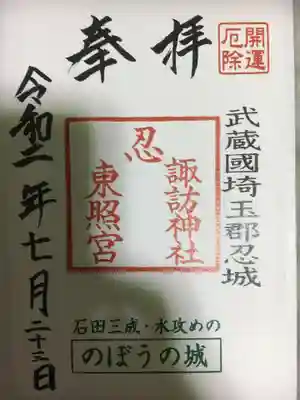 開運
厄除
奉拝
武蔵國埼玉郡忍城
忍
諏訪神社
東照宮
令和二年七月二十三日
石田三成・水攻めの
のぼうの城